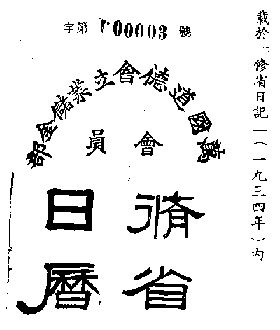 字第 P00003 號
萬國道德會立業儲金部
會員
脩省
日曆
載於「修省日記」(一九三四年)內